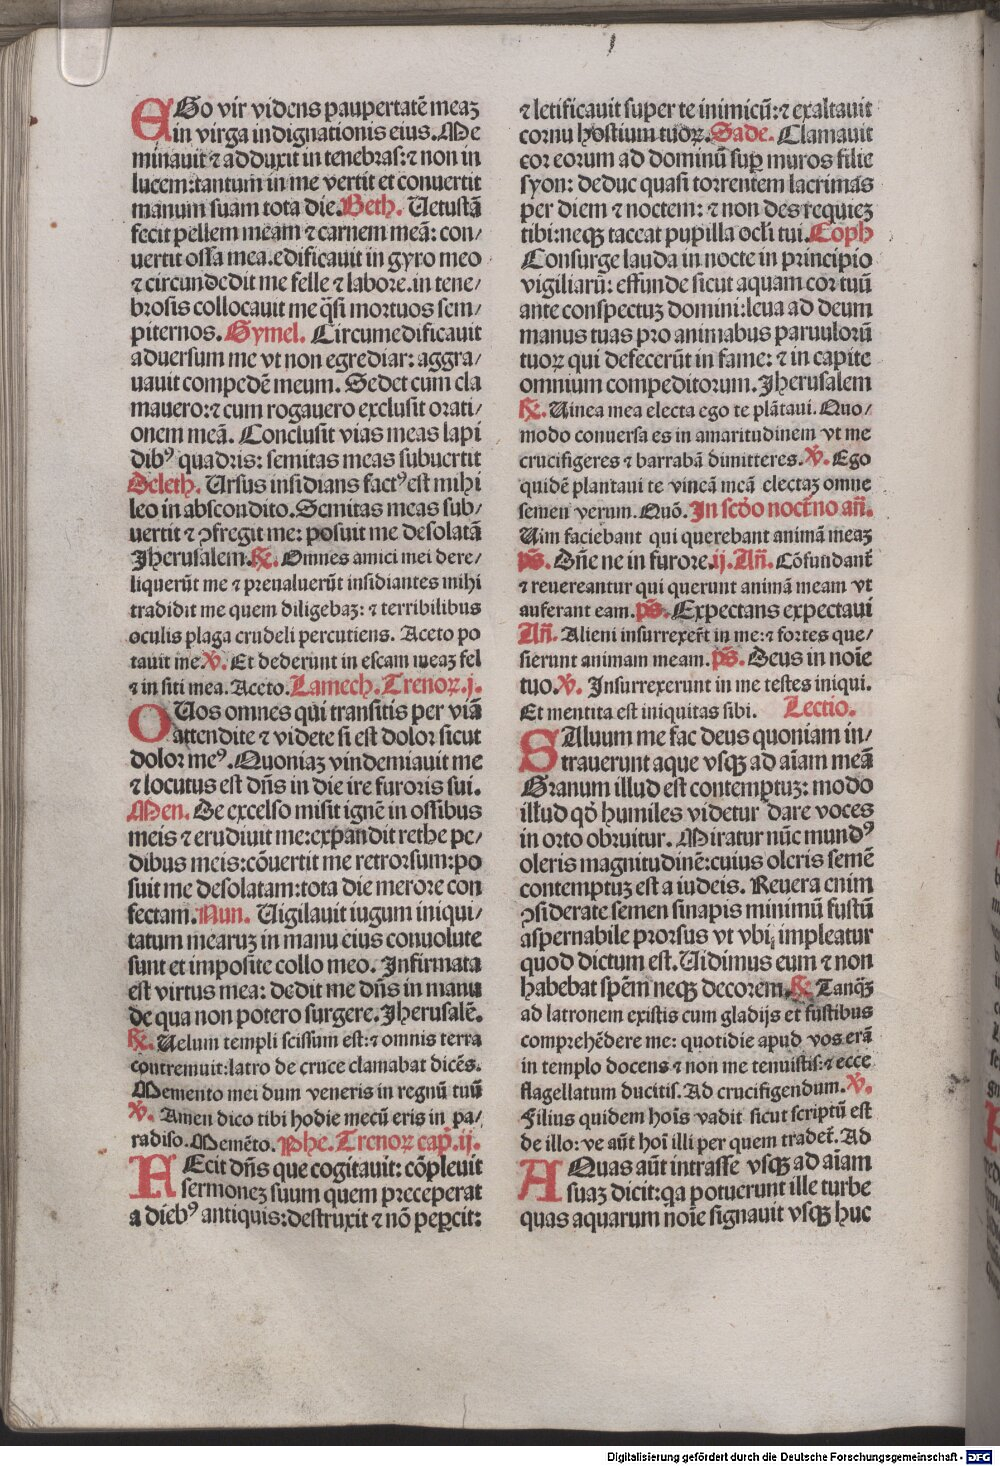 EGo vir videns paupertatē meaꝫ
in virga indignationis eius. Me
minauit ⁊ adduxit in tenebras: ⁊ non in
lucem: tantum in me vertit et conuertit
manum suam tota die. Beth. Uetustā
fecit pellem meam ⁊ carnem meā: con⸗
uertit ossa mea. edificauit in gyro meo
⁊ circundedit me felle ⁊ labore. in tene⸗
brosis collocauit me q̄si mortuos sem⸗
piternos. Gymel. Circumedificauit
aduersum me vt non egrediar: aggra⸗
uauit compedē meum. Sedet cum cla
mauero: ⁊ cum rogauero exclusit orati⸗
onem meā. Conclusit vias meas lapi
dibꝰ quadris: semitas meas subuertit
Deleth. Ursus insidians factꝰ est mihi
leo in abscondito. Semitas meas sub⸗
uertit ⁊ ꝯfregit me: posuit me desolatā
Jherusalem. ℟. Omnes amici mei dere⸗
liquerūt me ⁊ preualuerūt insidiantes mihi
tradidit me quem diligebaꝫ: ⁊ terribilibus
oculis plaga crudeli percutiens. Aceto po
tauit me. ℣. Et dederunt in escam meaꝫ fel
⁊ in siti mea. Aceto. Lamech. Trenoꝝ. j.
O Uos omnes qui transitis per viā
attendite ⁊ videte si est dolor sicut
dolor meꝰ. Quoniaꝫ vindemiauit me
⁊ locutus est dn̄s in die ire furoris sui.
Men. De excelso misit ignē in ossibus
meis ⁊ erudiuit me: expandit rethe pe⸗
dibus meis: cōuertit me retrorsum: po
suit me desolatam: tota die merore con
fectam. Nun. Uigilauit iugum iniqui⸗
tatum mearuꝫ in manu eius conuolute
sunt et imposite collo meo. Infirmata
est virtus mea: dedit me dn̄s in manu
de qua non potero surgere. Jherusalē.
℟. Uelum templi scissum est: ⁊ omnis terra
contremuit: latro de cruce clamabat dicēs.
Memento mei dum veneris in regnū tuū
℣. Amen dico tibi hodie mecū eris in pa⸗
radiso. Memēto. Phe. Trenoꝝ cap̄. ij.
FEcit dn̄s que cogitauit: cōpleuit
sermoneꝫ suum quem preceperat
a diebꝰ antiquis: destruxit ⁊ nō peꝑcit:
⁊ letificauit super te inimicū: ⁊ exaltauit
cornu hostium tuoꝝ. Sade. Clamauit
cor eorum ad dominū suꝑ muros filie
syon: deduc quasi torrentem lacrimas
per diem ⁊ noctem: ⁊ non des requieꝫ
tibi: neqꝫ taceat pupilla ocl̄i tui. Coph
Consurge lauda in nocte in principio
vigiliarū: effunde sicut aquam cor tuū
ante conspectuꝫ domini: leua ad deum
manus tuas pro animabus paruulorū
tuoꝝ qui defecerūt in fame: ⁊ in capite
omnium compeditorum. Jherusalem
℟. Uinea mea electa ego te plātaui. Quo⸗
modo conuersa es in amaritudinem vt me
crucifigeres ⁊ barrabā dimitteres. ℣. Ego
quidē plantaui te vineā meā electaꝫ omne
semen verum. Quō. In scd̄o noct̄no an̄.
Uim faciebant qui querebant animā meaꝫ
ps̄. Dn̄e ne in furore. ij. An̄. Cōfundant̄
⁊ reuereantur qui querunt animā meam vt
auferant eam. ps̄. Expectans expectaui
An̄. Alieni insurrexer̄t in me: ⁊ fortes que⸗
sierunt animam meam. ps̄. Deus in noīe
tuo. ℣. Insurrexerunt in me testes iniqui.
Et mentita est iniquitas sibi. Lectio.
SAluum me fac deus quoniam in⸗
trauerunt aque vsqꝫ ad aīam meā
Granum illud est contemptuꝫ: modo
illud qd̄ humiles videtur dare voces
in orto obruitur. Miratur nūc mundꝰ
oleris magnitudinē: cuius oleris semē
contemptuꝫ est a iudeis. Reuera enim
ꝯsiderate semen sinapis minimū fustū
aspernabile prorsus vt vbi impleatur
quod dictum est. Uidimus eum ⁊ non
habebat spēm neqꝫ decorem. ℟. Tanqꝫ
ad latronem existis cum gladijs et fustibus
comprehēdere me: quotidie apud vos erā
in templo docens ⁊ non me tenuistis: ⁊ ecce
flagellatum ducitis. Ad crucifigendum. ℣.
Filius quidem hoīs vadit sicut scriptū est
de illo: ve aūt hoī illi per quem tradet̄. Ad
AQuas aūt intrasse vsqꝫ ad aīam
suaꝫ dicit: qa potuerunt ille turbe
quas aquarum noīe signauit vsqꝫ huc
Digitalisierung gefördert durch die Deutsche Forschungsgemeinschaft - DFG